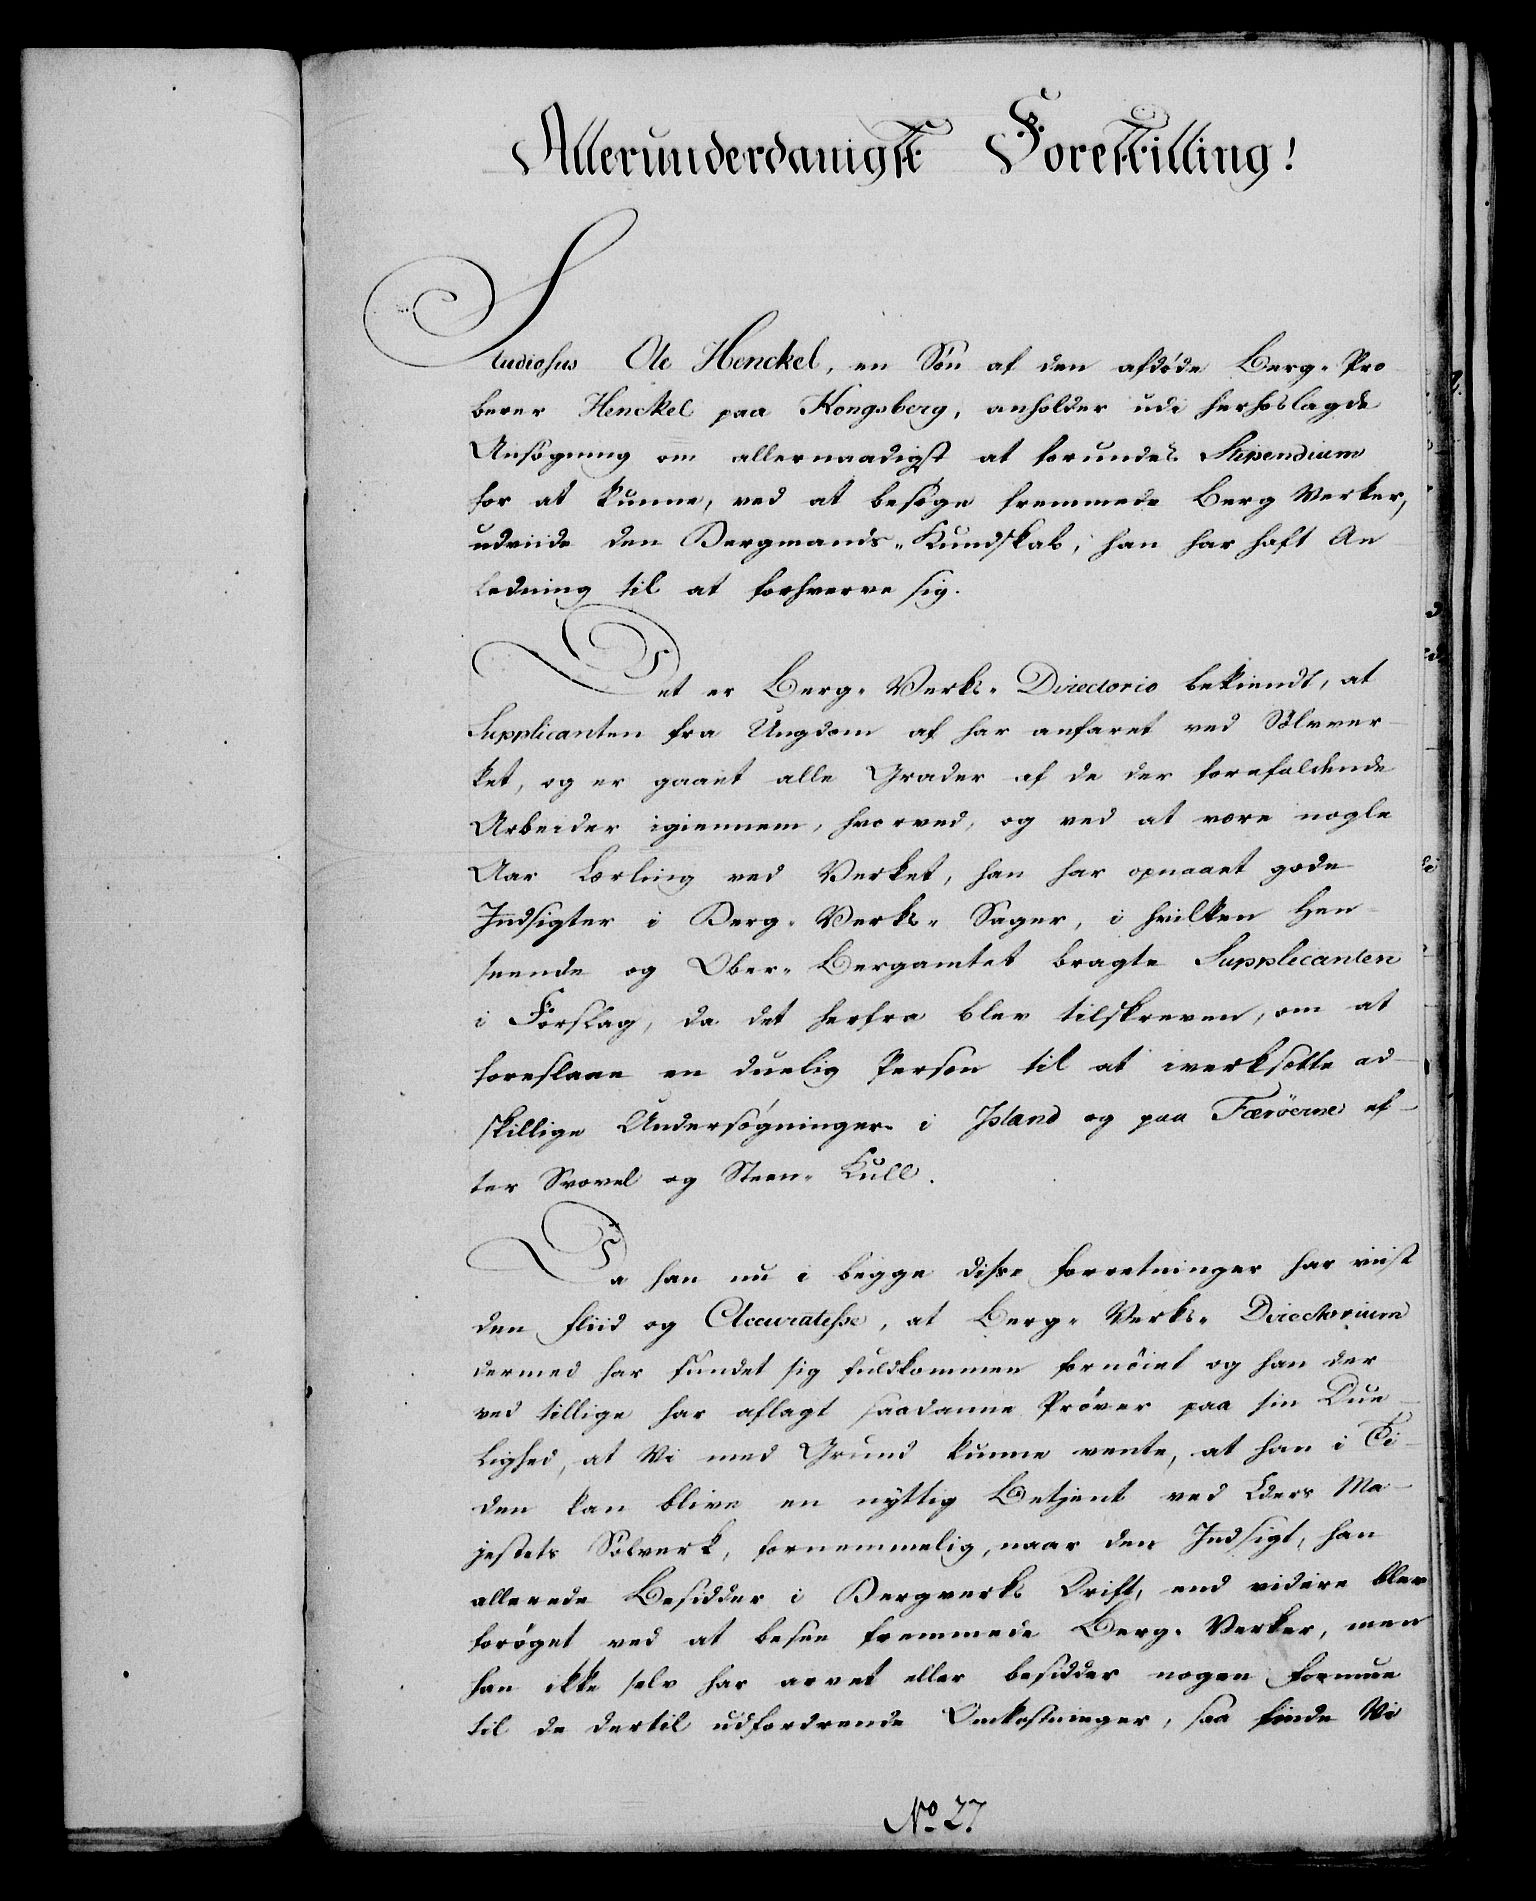 Allerunderdanigst Forestilling!
Studiosus Ole Henckel, en Søn af den afdøde Berg-Pro
berer Henckel paa Kongsberg, anholder udi herhoslagde
Ansøgning om allernaadigst at forundes Stipendium
for at kunne, ved at besøge fremmede Berg Verker,
udviide den Bergmands-Kundskab, han har haft An
ledning til at forhverve sig.
Det er Berg-Verks-Directorio bekiendt, at
Supplicanten fra Ungdom af har anfaret ved Sølvver-
ket, og er gaaet alle Grader af de der forefaldende
Arbeider igiennem, hvorved, og ved at være nogle
Aar Lærling ved Verket, han har opnaaet gode
Indsigter i Berg-Verks-Sager, i hvilken Hen-
seende og Ober-Bergamtet bragte Supplicanten
i Forslag, da det herfra blev tilskreven, om at
foreslaae en duelig Person til at iverksætte ad-
skillige Undersøgninger i Island og paa Færöerne ef-
ter Svovel og Steen-Kull.
Da han nu i begge disse forretninger har viist
den fliid og Accuratesse, at Berg-Verks-Directorium
dermed har fundet sig fuldkommen fornøiet og han der
ved tillige har aflagt saadanne Prøver paa sin Due-
lighed, at Vi med Grund kunne vente, at han i Ti-
den kan blive en nyttig Betjent ved Eders Ma-
jestets Sølverk, fornemmelig, naar den Indsigt, han
allerede Besidder i Bergverks Drift, end videre blev
forøget ved at besee fremmede Berg-Verker, men
han ikke selv har arvet eller besidder nogen formue
til de dertil udfordrende Omkostninger, saa finde Vi
No. 27